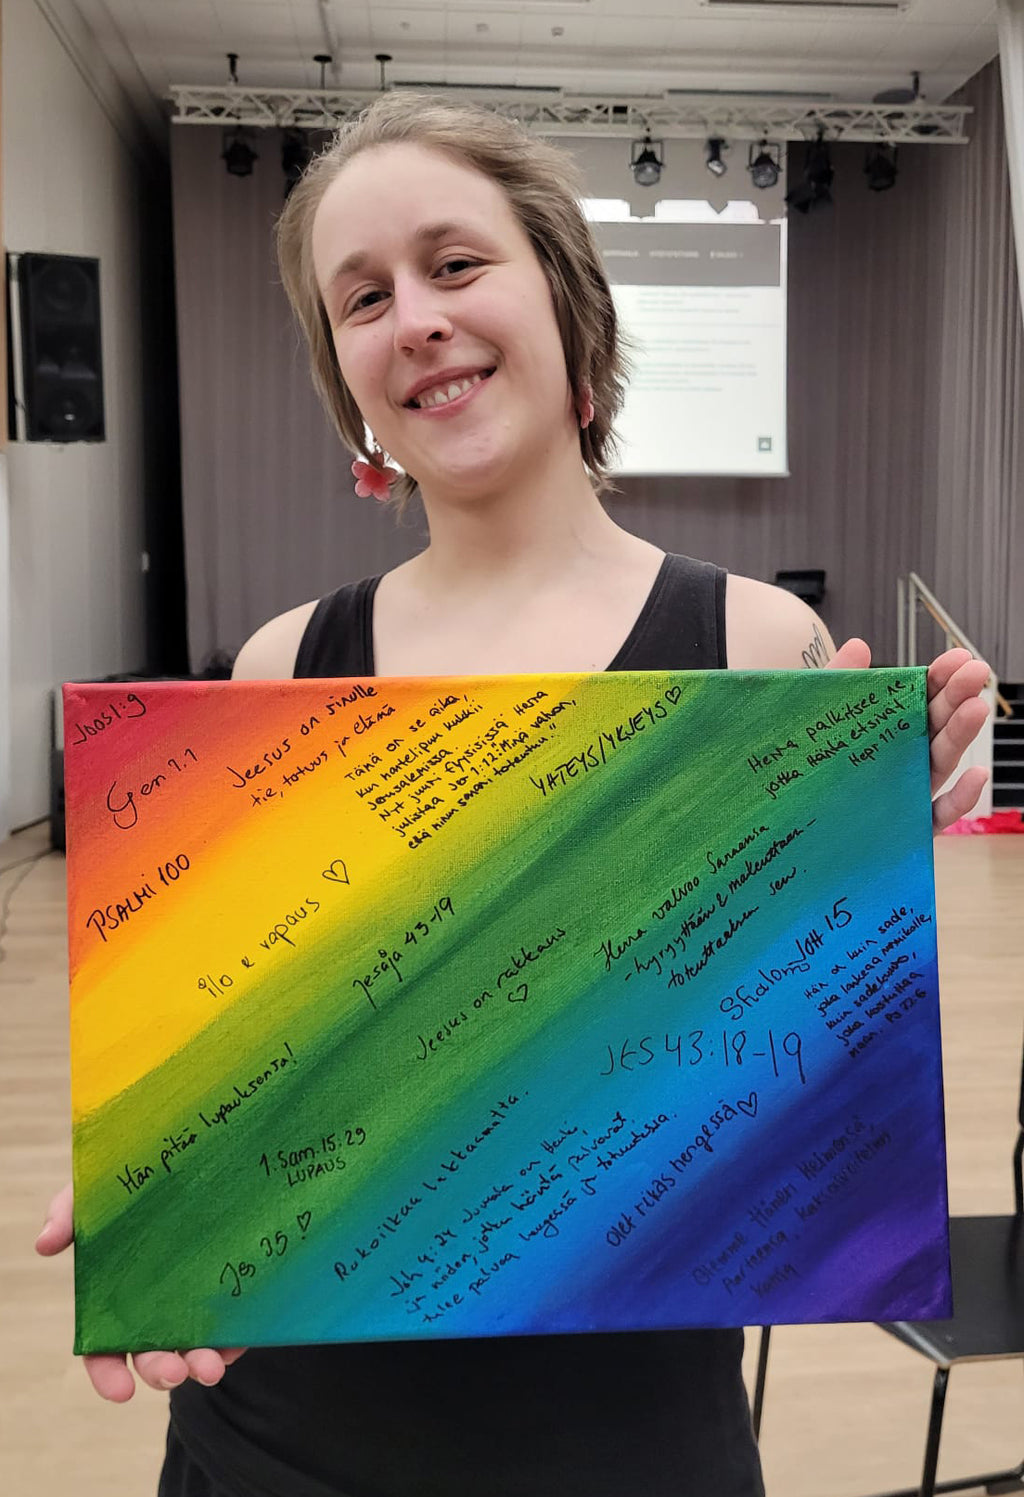 Joos 1:9
Gen 1.1
Jeesus on sinulle
tie, totuus ja elämä
Tämä on se aika,
kun mantelipuu kukkii
Jerusalemissa.
Nyt juuri fyysisissä Herra
julistaa Jer 1:12: "Minä valvon,
että minun sanani toteutuu."
YHTEYS/YKJEYS ♡
Herra palkitsee ne,
jotka Häntä etsivät
Hepr 11:6
PSALMI 100
ilo & vapaus ♡
Jesaja 43-19
Jeesus on rakkaus
♡
Herra valvoo Sanaansa
- hyryyttään &
toteuttaaksen sen.
Shalom
JOH 15
Hän on kuin sade,
joka laskeaa
kuin sadekuuro,
joka kostuttaa
maan. Ps 72:6
JES 43:18-19
Hän pitää lupauksensa!
1. Sam. 15:29
LUPAUS
Jes 35 ♡
Rukoilkaa lakkaamatta.
Joh 4:24 Jumala on Henki,
ja niiden, jotka häntä palvovat,
tulee palvoa hengessä ja totuudessa.
Olet rikas hengessä ♡
Olemme Hänen